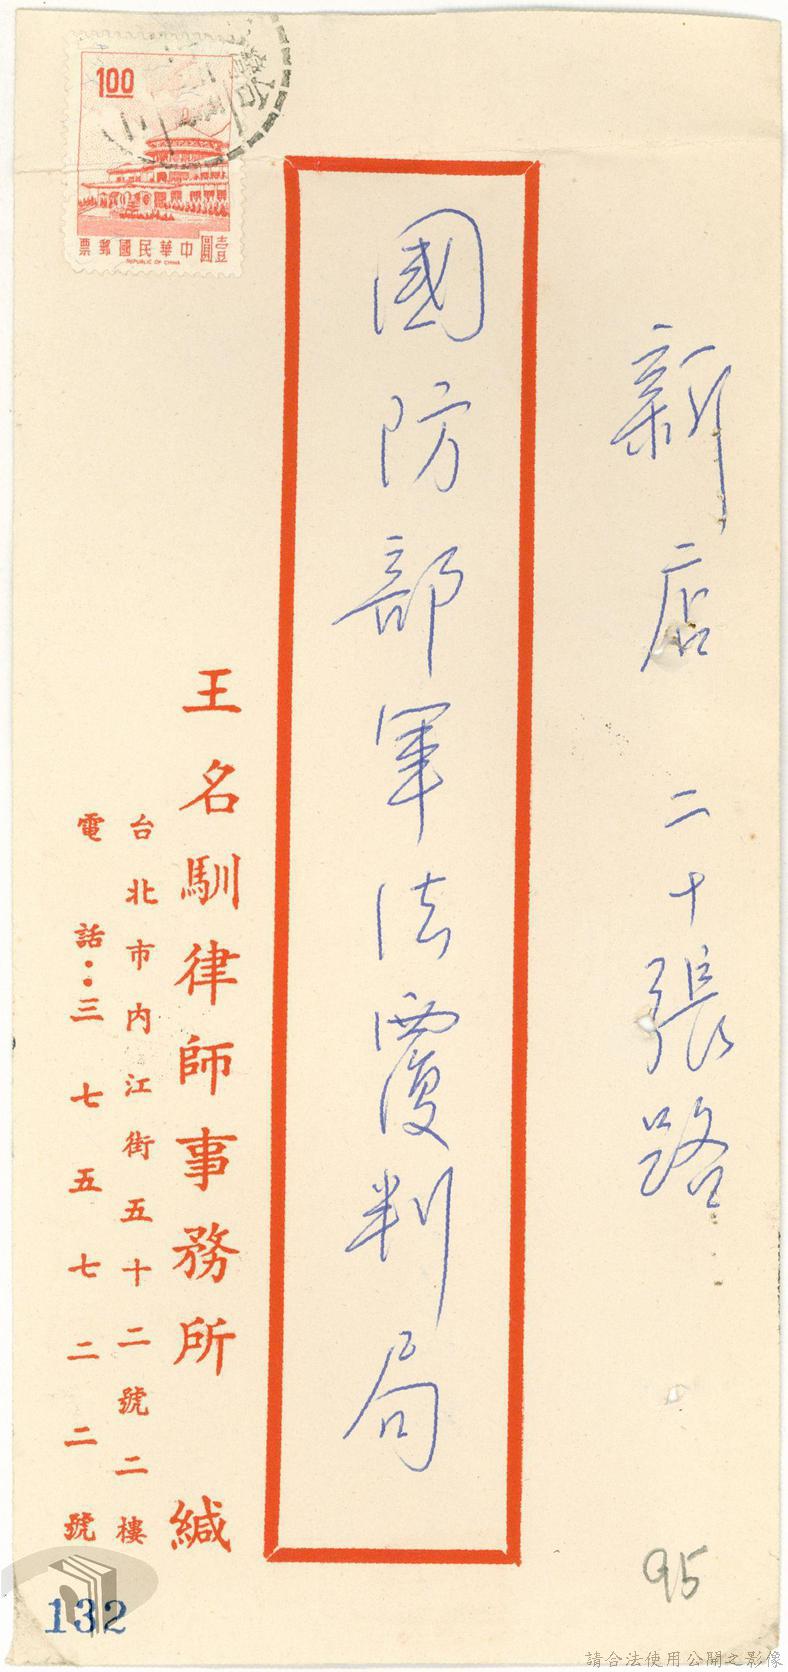 新店 二十張路
國防部軍法覆判局
王名馴律師事務所 緘
台北市內江街五十二號二樓
電話：三七五七二二號
1.00
票郵國民華中 壹圓
REPUBLIC OF CHINA
95
132
請合法使用公開之影像